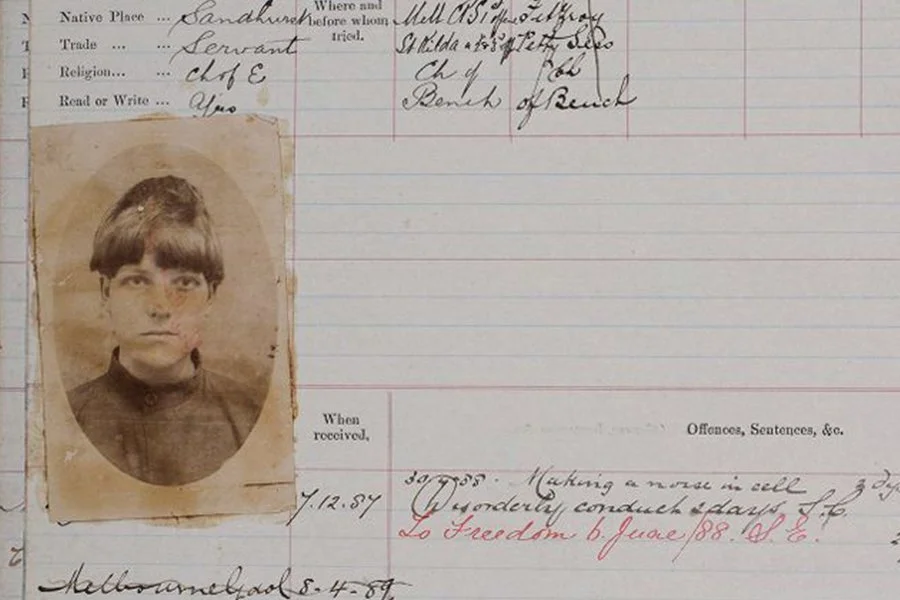 Native Place ... Sandhurst
Trade ... ... Servant
Religion... ... Ch of E
Read or Write ... Yes
Where and
before whom
tried.
Melb Fitzroy
St Kilda Petty
Ch of
Bench of Bench
When
received.
Offences, Sentences, &c.
7.12.87
Making a noise in cell 3
Disorderly conduct 2 days S.C.
To Freedom 6. June/88. S.E.
Melbourne Gaol 8-4-89